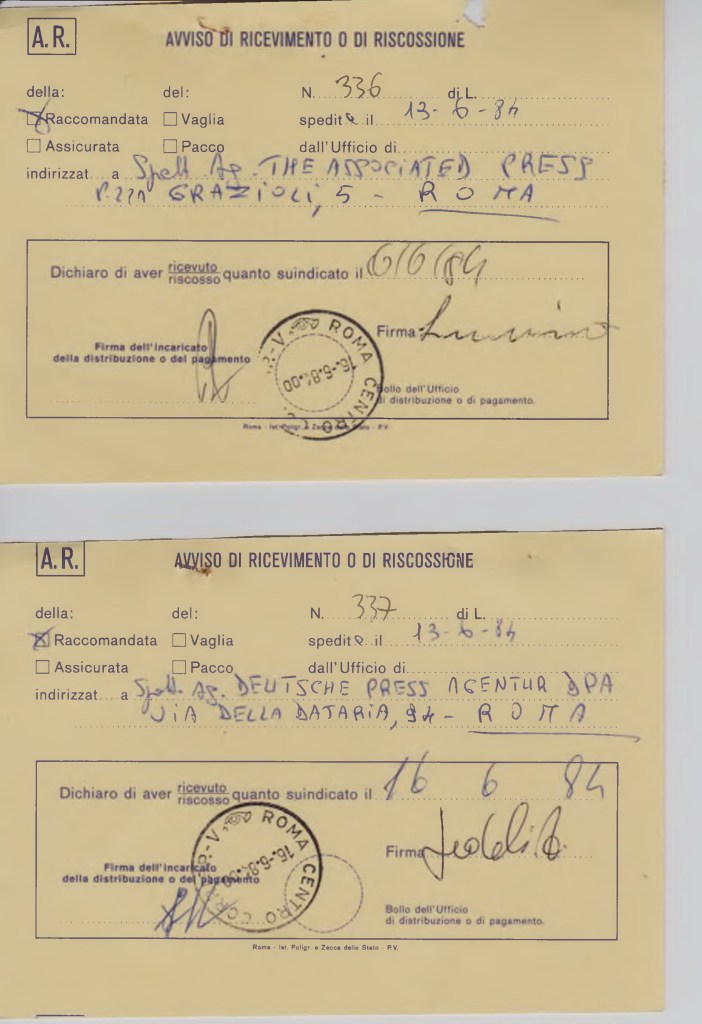 A.R. AVVISO DI RICEVIMENTO O DI RISCOSSIONE
della: del: N. 336 di L.
Raccomandata Vaglia spedite il 13-6-84
Assicurata Pacco dall'Ufficio di
indirizzat a Spett. Ag. THE ASSOCIATED PRESS
P.zza GRAZIOLI, 5 - ROMA
Dichiaro di aver ricevuto riscosso quanto suindicato il 6/6/84
Firma
Firma dell'Incaricato
della distribuzione o del pagamento
ROMA CENTRO
16.-6.84.00
Bollo dell'Ufficio
di distribuzione o di pagamento.
Roma - Ist. Poligr. e Zecca dello Stato - P.V.
A.R. AVVISO DI RICEVIMENTO O DI RISCOSSIONE
della: del: N. 337 di L.
Raccomandata Vaglia spedite il 13-6-84
Assicurata Pacco dall'Ufficio di
indirizzat a Spett. Ag. DEUTSCHE PRESS AGENTUR DPA
VIA DELLA DATARIA, 94 - ROMA
Dichiaro di aver ricevuto riscosso quanto suindicato il 16 6 84
Firma
Firma dell'Incaricato
della distribuzione o del pagamento
ROMA CENTRO
Bollo dell'Ufficio
di distribuzione o di pagamento.
Roma - Ist. Poligr. e Zecca dello Stato - P.V.